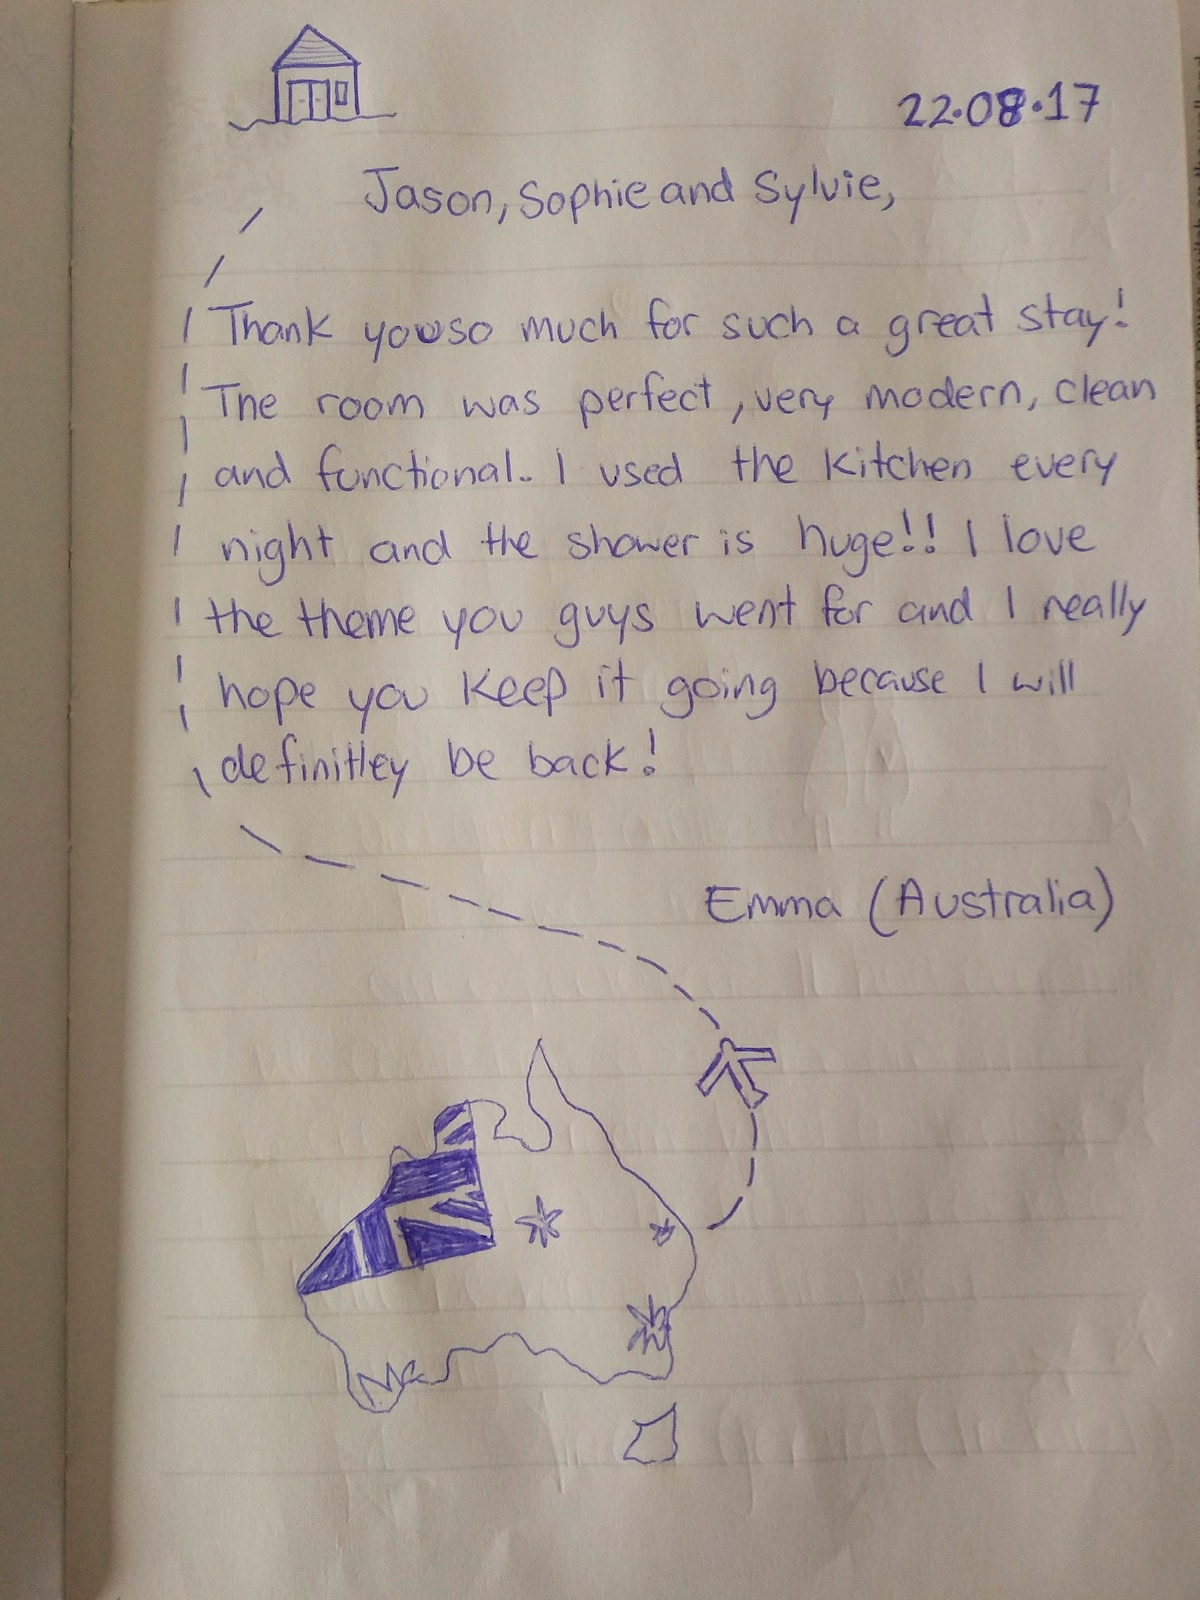 22.08.17
Jason, Sophie and Sylvie,
Thank you so much for such a great stay!
The room was perfect, very modern, clean
and functional.. I used the kitchen every
night and the shower is huge!! I love
the theme you guys went for and I really
hope you keep it going because I will
definitley be back!
Emma (Australia)